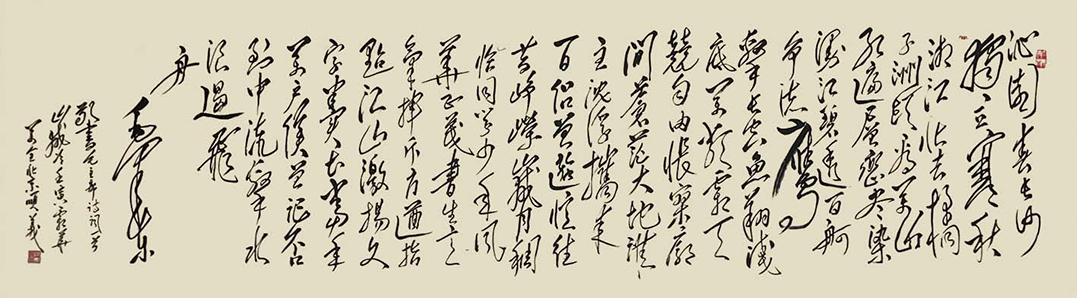 沁园春长沙
独立寒秋
湘江北去橘
子洲头看万山
红遍层峦尽染
漫江碧透百舸
争流鹰
击长空鱼翔浅
底万类霜天
竞自由怅寥廓
问苍茫大地谁
主沉浮携来
百侣曾游忆往
昔峥嵘岁月稠
恰同学少年风
华正茂书生意
气挥斥方遒指
点江山激扬文
字粪土当年
万户侯曾记否
到中流击水
浪遏飞
舟
毛泽东
敬书毛主席诗词